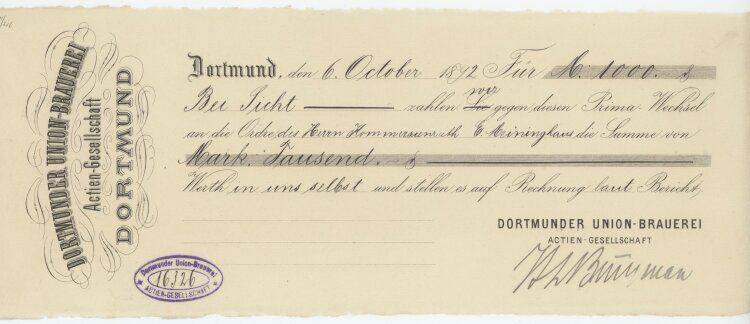 DORTMUNDER UNION-BRAUEREI
Actien-Gesellschaft
DORTMUND
Dortmund, den 6. October 1892 Für M: 1000.
wir
Bei Sicht zahlen Sie gegen diesen Prima-Wechsel
an die Ordre des Herrn Kommerzienrath E. Meininghaus die Summe von
Mark Tausend.
Werth in uns selbst und stellen es auf Rechnung laut Bericht
DORTMUNDER UNION-BRAUEREI
ACTIEN-GESELLSCHAFT
Dortmunder Union-Brauerei
16326
ACTIEN-GESELLSCHAFT